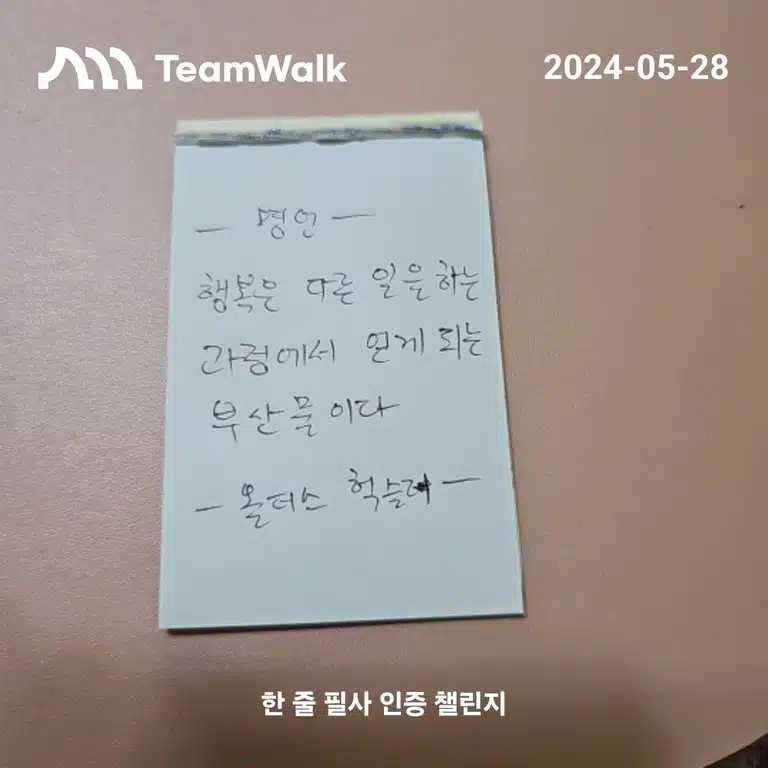 TeamWalk
2024-05-28
- 명언 -
행복은 다른 일을 하는
과정에서 얻게 되는
부산물이다
- 올더스 헉슬리 -
한 줄 필사 인증 챌린지